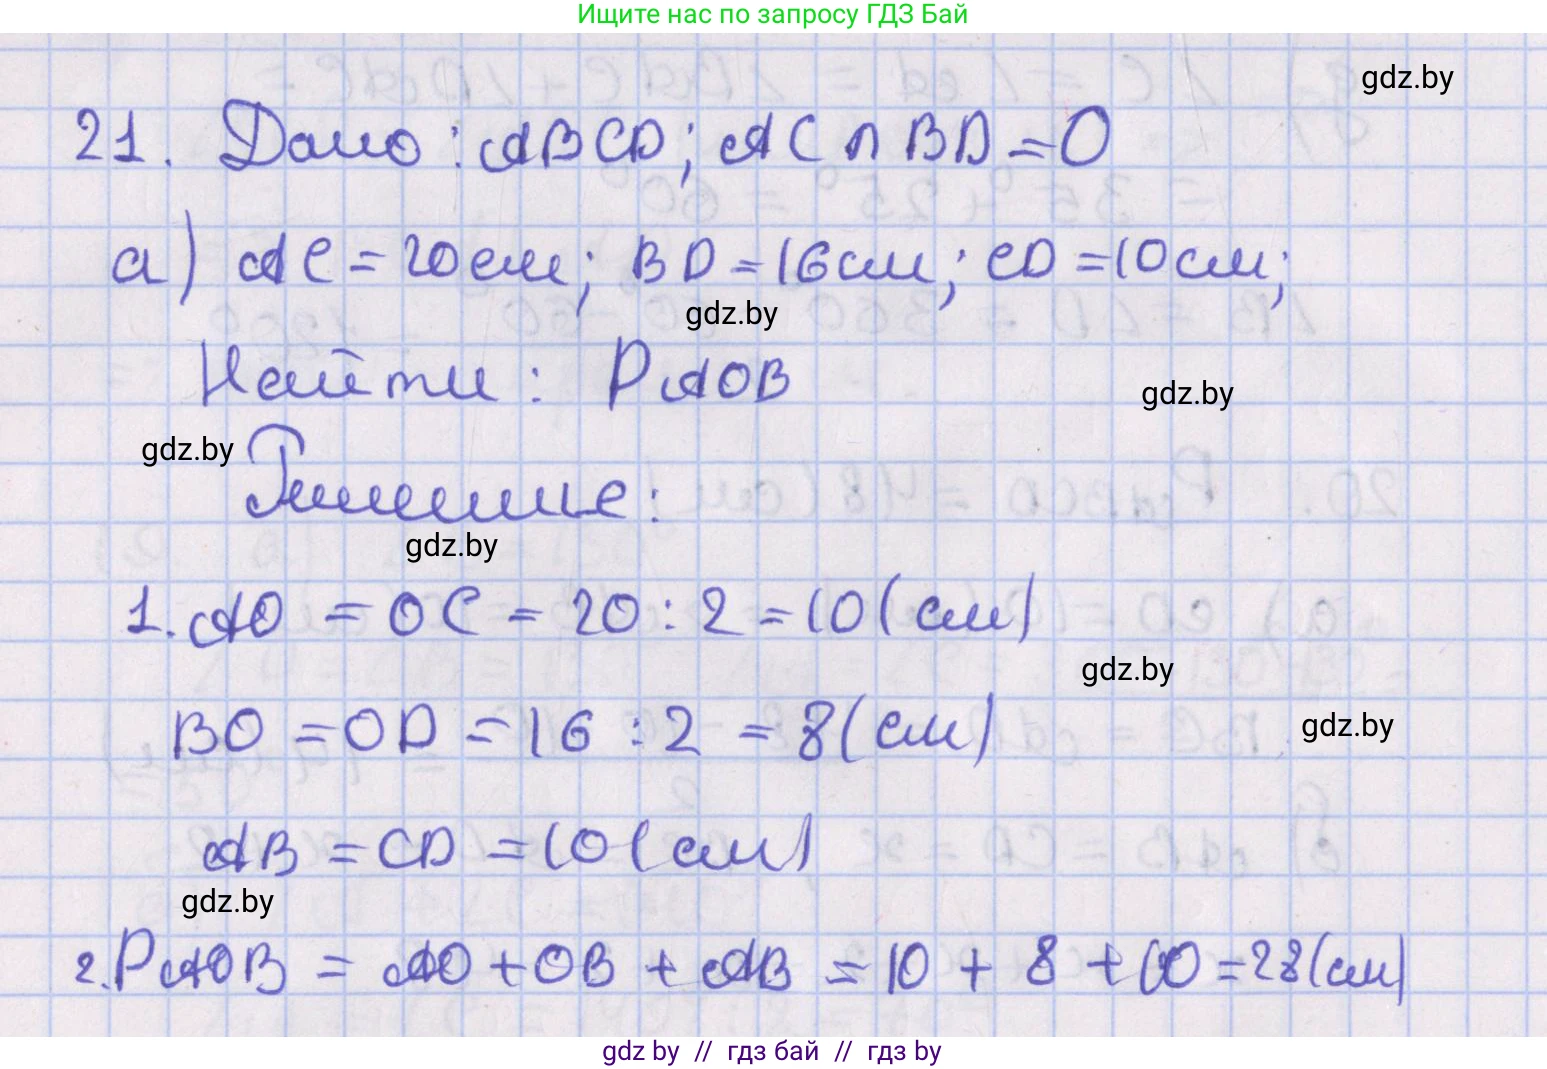 Ищите нас по запросу ГДЗ Бай
gdz.by
21. Дано: ABCD; AC ∩ BD = O
а) AC = 20см; BD = 16см; CD = 10см;
gdz.by
Найти: PAOB
gdz.by
gdz.by
Решение:
gdz.by
1. AO = OC = 20 : 2 = 10 (см)
gdz.by
BO = OD = 16 : 2 = 8 (см)
gdz.by
AB = CD = 10 (см)
gdz.by
2. PAOB = AO + OB + AB = 10 + 8 + 10 = 28 (см)
gdz by // гдз бай // гдз by